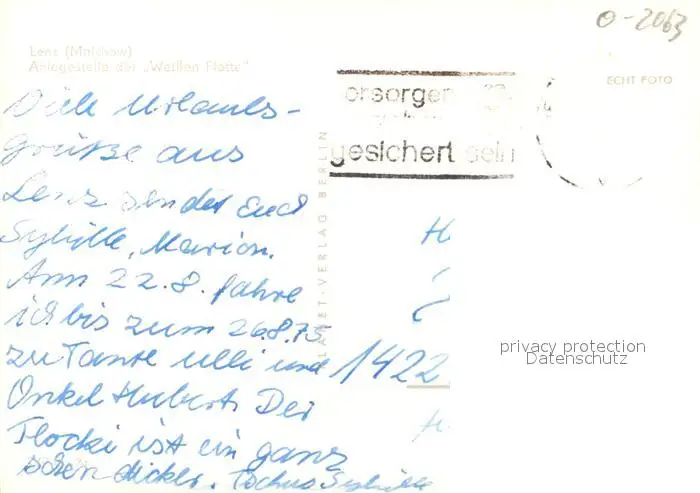 O-2063
Lenz (Malchow)
Anlegestelle der „Weißen Flotte"
ECHT FOTO
orsorgen
gesichert sein
Viele Urlaubs-
grüße aus
Lenz sendet Euch
Sybille, Marion.
Am 22.8. fahre
ich bis zum 26.8.75
zu Tante Ulli und
Onkel Hubert. Der
Flocki ist ein ganz
schön dicker. Tschüs Sybille
VERLAG BERLIN
H
1422
H
privacy protection
Datenschutz